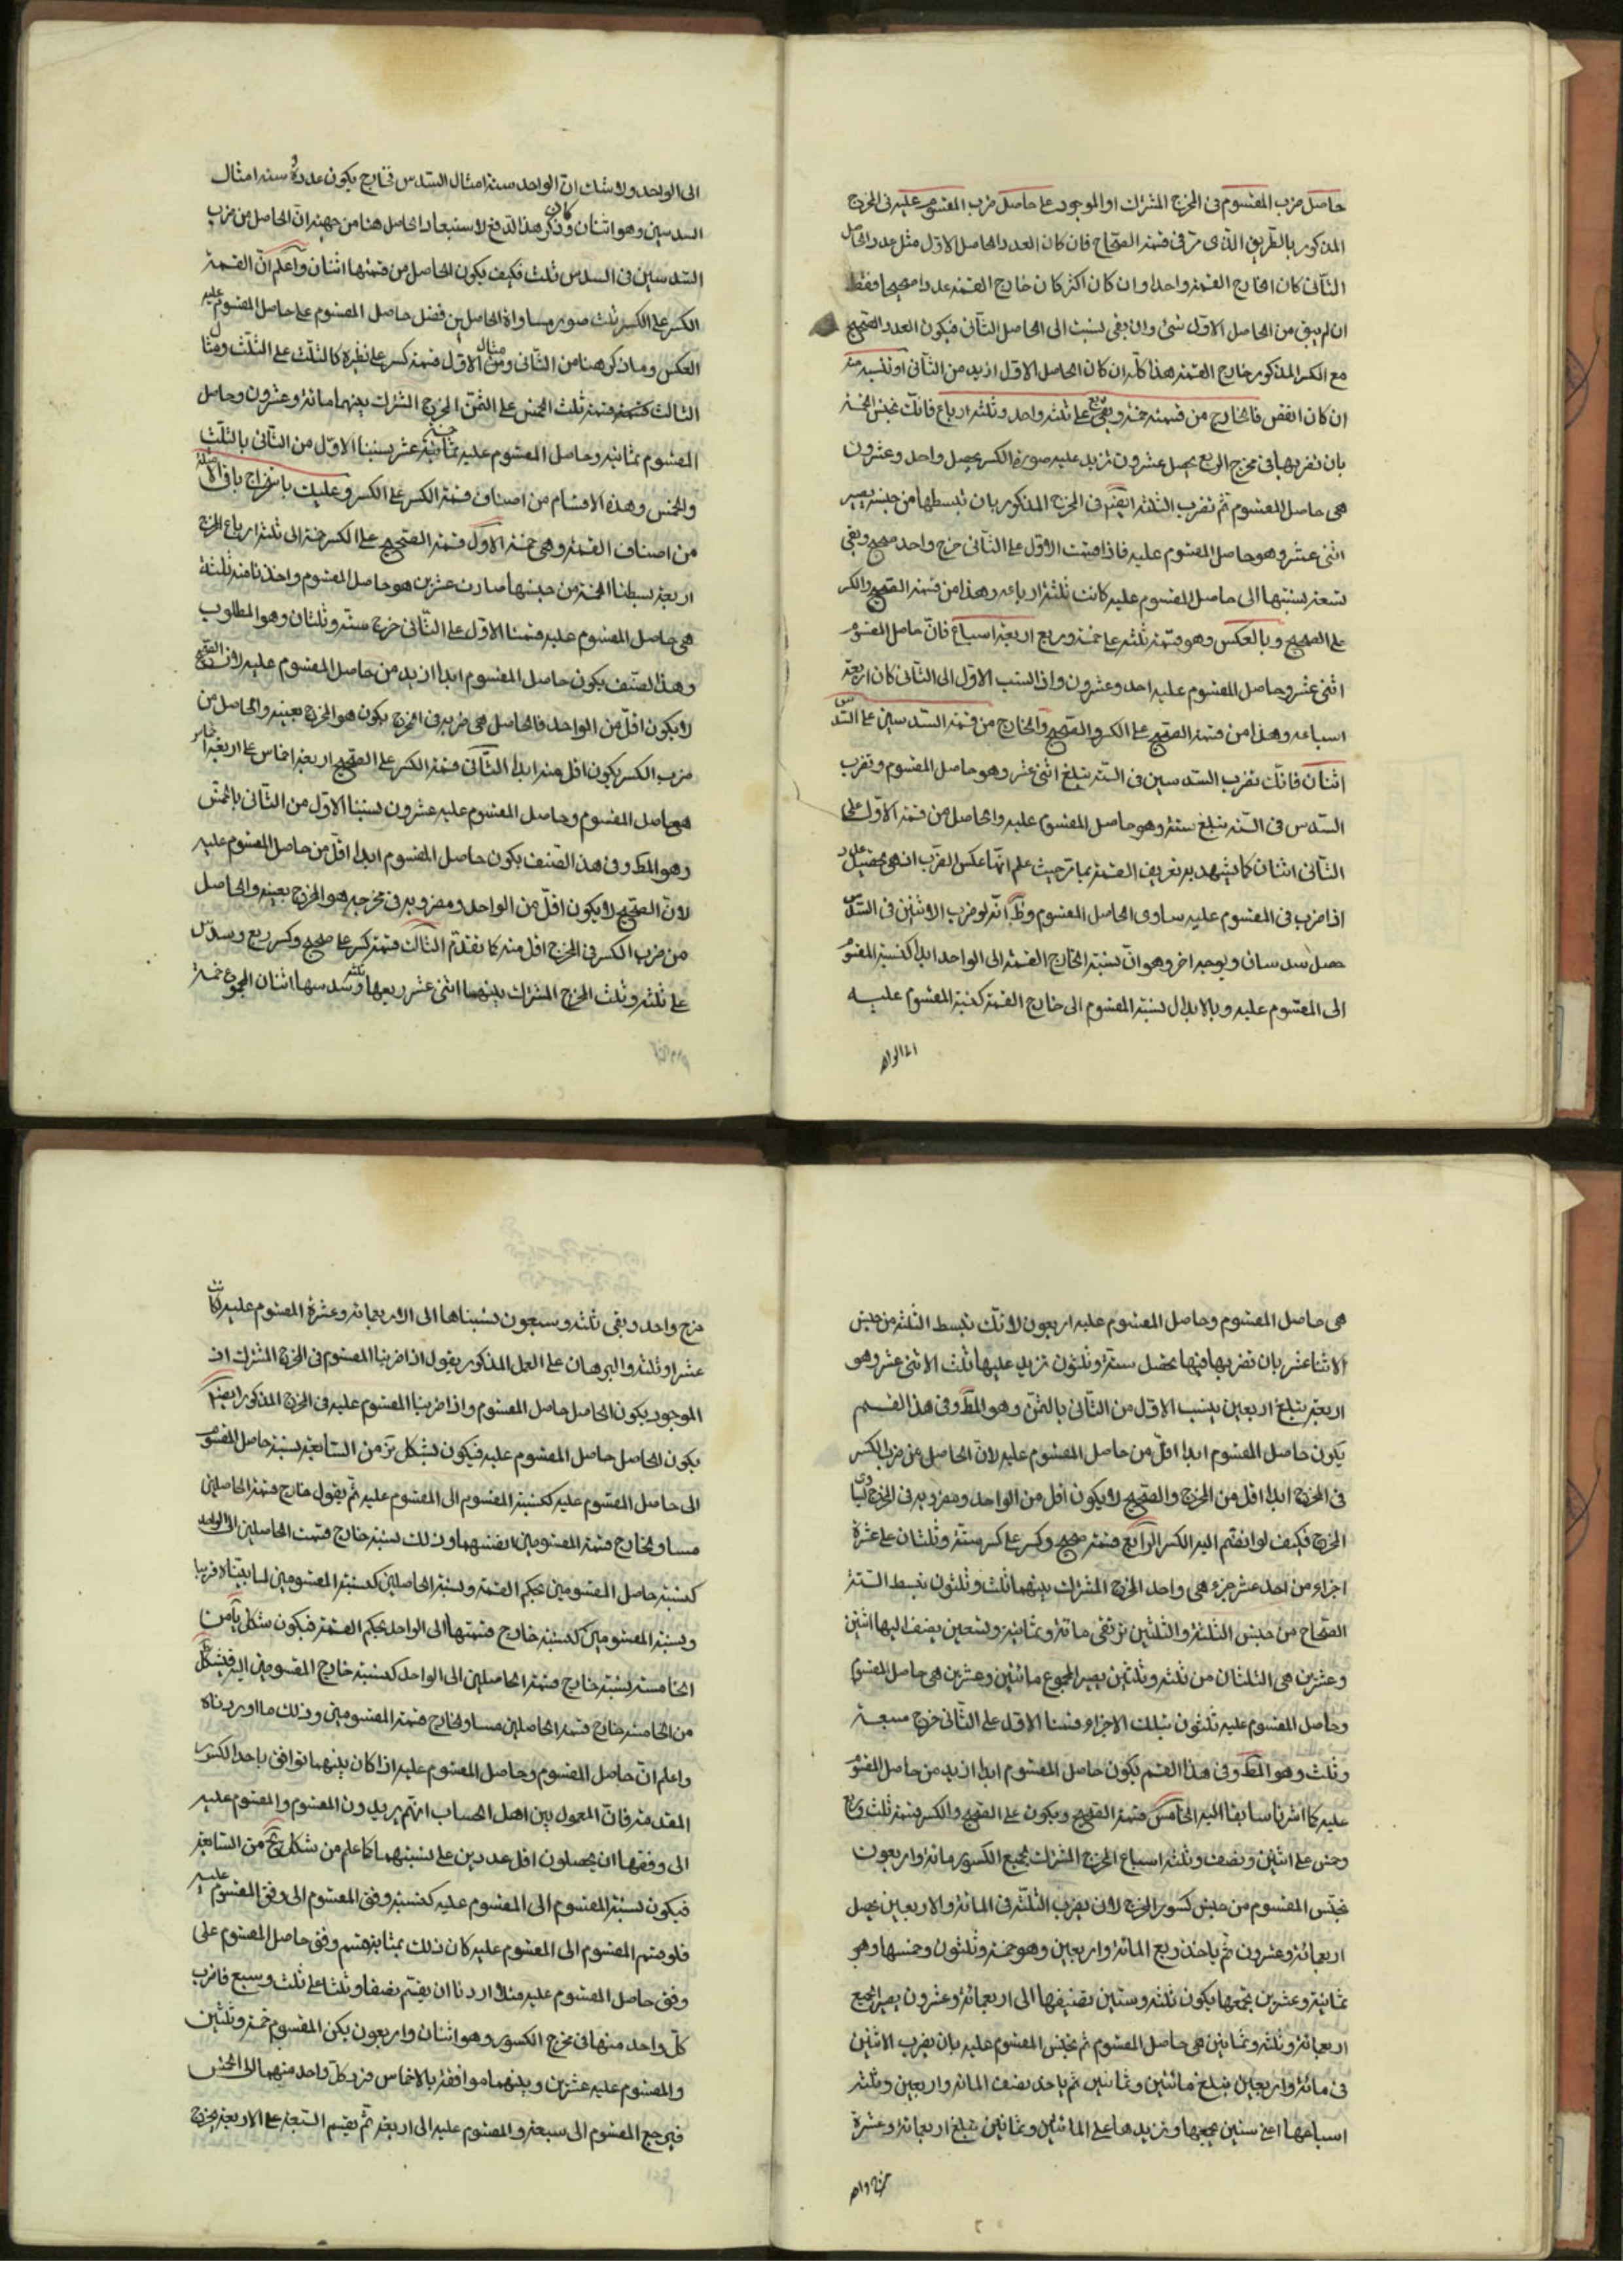 حاصل ضرب المقسوم فى المخرج المشترك او الموجود على حاصل ضرب المقسوم عليه فى المخرج
المذكور بالطريق الذى مر فى قسمة الصحاح فان كان العدد الحاصل الاول مثل عدد الحاصل
الثانى كان الخارج القسمة واحدا وان كان اكثر كان خارج القسمة عددا صحيحا فقط
ان لم يبق من الحاصل الاول شئ وان بقى نسبت الى الحاصل الثانى فيكون العدد الصحيح
مع الكسر المذكور خارج القسمة هذا كله ان كان الحاصل الاول ازيد من الثانى او تنسبه منه
ان كان انقص فالخارج من قسمة خمسة وربع على ثلثة واحد وثلثة ارباع فانك تجنس الخمسة
بان تضربها فى مخرج الربع يحصل عشرون تزيد عليه صورة الكسر يحصل واحد وعشرون
هى حاصل المقسوم ثم تضرب الثلثة ايضا فى المخرج المذكور بان تبسطها من جنسه يصير
اثنى عشر وهو حاصل المقسوم عليه فاذا قسمت الاول على الثانى خرج واحد صحيح وبقى
تسعة نسبتها الى حاصل المقسوم عليه كانت ثلثة ارباعه وهذا من قسمة الصحيح والكسر
على الصحيح وبالعكس وهو قسمة ثلثة على خمسة وربع اربعة اسباع فان حاصل المقسوم
اثنى عشر وحاصل المقسوم عليه احد وعشرون واذا نسبت الاول الى الثانى كان اربعة
اسباعه وهذا من قسمة الصحيح على الكسر والصحيح والخارج من قسمة السدسين على السدس
اثنان فانك تضرب السدسين فى الستة يبلغ اثنى عشر وهو حاصل المقسوم وتضرب
السدس فى الستة يبلغ ستة وهو حاصل المقسوم عليه والحاصل من قسمة الاول على
الثانى اثنان كما يشهد به تعريف القسمة بما مر حيث علم انها عكس الضرب اذ هى تحصيل عدد
اذا ضرب فى المقسوم عليه ساوى الحاصل المقسوم وظ انه لو ضرب الاثنين فى السدس
حصل سدسان وبوجه اخر وهو ان نسبة الخارج القسمة الى الواحد ابدا كنسبة المقسوم
الى المقسوم عليه وبالابدال نسبة المقسوم الى خارج القسمة كنسبة المقسوم عليه
الى الواحد
الى الواحد ولا شك ان الواحد ستة امثال السدس فخارج يكون عدده ستة امثال
السدسين وهو اثنان وكان ذكر هذا الدفع لاستبعاد الحاصل هنا من جهة ان الحاصل من ضرب
السدسين فى السدس ثلث فكيف يكون الحاصل من قسمتها اثنان واعلم ان القسمة
الكسر على الكسر ثلث صور مساواة الحاصلين فضل حاصل المقسوم على حاصل المقسوم عليه
العكس وما ذكر هنا من الثانى ومثال الاول قسمة كسر على نظيره كالثلث على الثلث ومثال
الثالث كقسمة ثلث الخمس على الثمن المخرج المشترك بينهما مائة وعشرون وحاصل
المقسوم ثمانية وحاصل المقسوم عليه خمسة عشر نسبنا الاول من الثانى بالثلث
والخمس وهذه الاقسام من اصناف قسمة الكسر على الكسر وعليك باستخراج باقى الامثلة
من اصناف القسمة وهى خمسة الاول قسمة الصحيح على الكسر خمسة الى ثلثة ارباع المخرج
اربعة بسطنا الخمسة من جنسها صارت عشرين هو حاصل المقسوم واخذنا منه ثلثة
هى حاصل المقسوم عليه قسمنا الاول على الثانى خرج ستة وثلثان وهو المطلوب
وهذا الصنف يكون حاصل المقسوم ابدا ازيد من حاصل المقسوم عليه لان الصحيح
لا يكون اقل من الواحد فالحاصل فى ضربه فى المخرج يكون هو المخرج بعينه والحاصل من
ضرب الكسر يكون اقل منه ابدا الثانى قسمة الكسر على الصحيح اربعة اخماس على اربعة
حاصل المقسوم وحاصل المقسوم عليه عشرون نسبنا الاول من الثانى بالخمس
وهو المط وفى هذا الصنف يكون حاصل المقسوم ابدا اقل من حاصل المقسوم عليه
لان الصحيح لا يكون اقل من الواحد ومضروبه فى مخرجه هو المخرج بعينه والحاصل
من ضرب الكسر فى المخرج اقل منه كما تقدم الثالث قسمة كسر على صحيح وكسر ربع وسدس
على ثلثة وثلث المخرج المشترك بينهما اثنى عشر ربعها ثلثة وسدسها اثنان المجموع خمسة
هى حاصل المقسوم وحاصل المقسوم عليه اربعون لانك تبسط الثلثة من جنس
الاثنا عشر بان تضربها فيها يحصل ستة وثلثون تزيد عليها ثلث الاثنى عشر وهو
اربعة يبلغ اربعين ينسب الاول من الثانى بالثمن وهو المط وفى هذا القسم
يكون حاصل المقسوم ابدا اقل من حاصل المقسوم عليه لان الحاصل من ضرب الكسر
فى المخرج ابدا اقل من المخرج والصحيح لا يكون اقل من الواحد ومضروبه فى المخرج يساوى
المخرج فكيف لو انضم اليه الكسر الرابع قسمة صحيح وكسر على كسر ستة وثلثان على عشرة
اجزاء من احد عشر جزء هى واحد المخرج المشترك بينهما ثلث وثلثون تبسط الستة
الصحاح من جنس الثلثة والثلثين ترتقى مائة وثمانية وتسعين يضف اليها اثنين
وعشرين هى الثلثان من ثلثة وثلثين يصير المجموع مائتين وعشرين هى حاصل المقسوم
وحاصل المقسوم عليه ثلثون بتلك الاجزاء قسمنا الاول على الثانى خرج سبعة
وثلث وهو المط وفى هذا القسم يكون حاصل المقسوم ابدا ازيد من حاصل المقسوم
عليه كما اشرنا سابقا اليه الخامس قسمة الصحيح ويكون على الصحيح والكسر قسمة ثلث وربع
وخمس على اثنين ونصف وثلثة اسباع المخرج المشترك بجميع الكسور مائة واربعون
تجنس المقسوم من جنس كسور المخرج لان يضرب الثلثة فى المائة والاربعين يحصل
اربعمائة وعشرون ثم ياخذ ربع المائة واربعين وهو خمسة وثلثون وخمسها وهو
ثمانية وعشرين نجمعها يكون ثلثة وستين تضيفها الى اربعمائة وعشرون يصير الجميع
اربعمائة وثلثة وثمانين هى حاصل المقسوم ثم تجنس المقسوم عليه بان يضرب الاثنين
فى مائة واربعين يبلغ مائتين وثمانين ثم ياخذ نصف المائة واربعين وثلثة
اسباعها اعنى ستين يجمعها ويزيدها على المائتين وثمانين يبلغ اربعمائة وعشرة
خرج واحد
خرج واحد وبقى ثلثة وسبعون نسبناها الى الاربعمائة وعشرة المقسوم عليه كانت
عشرا وثلثة والبرهان على العمل المذكور يقول اذا ضربنا المقسوم فى المخرج المشترك او
الموجود يكون الحاصل حاصل المقسوم واذا ضربنا المقسوم عليه فى المخرج المذكور ايضا
يكون الحاصل حاصل المقسوم عليه فيكون بشكل من السابعة نسبة حاصل المقسوم
الى حاصل المقسوم عليه كنسبة المقسوم الى المقسوم عليه ثم يقول خارج قسمة الحاصلين
مساو لخارج قسمة المقسومين انفسهما وذلك نسبة خارج قسمت الحاصلين الى الواحد
كنسبة حاصل المقسومين بحكم القسمة ونسبة الحاصلين كنسبة المقسومين لما بيناه قريبا
ونسبة المقسومين كنسبة خارج قسمتها الى الواحد بحكم القسمة فيكون بشكل يا من
الخامسة نسبة خارج قسمة الحاصلين الى الواحد كنسبة خارج المقسومين اليه فبشكل ط
من الخامسة خارج قسمة الحاصلين مساو لخارج قسمة المقسومين وذلك ما اوردناه
واعلم ان حاصل المقسوم وحاصل المقسوم عليه اذا كان بينهما توافق باحد الكسور
المقدمة فان المعمول بين اهل الحساب انهم يردون المقسوم والمقسوم عليه
الى وفقها ان يحصلون اقل عددين على نسبتهما كما علم من شكل من السابعة
فيكون نسبة المقسوم الى المقسوم عليه كنسبة وفق المقسوم الى وفق المقسوم عليه
فلو قسم المقسوم الى المقسوم عليه كان ذلك بمثابة قسم وفق حاصل المقسوم على
وفق حاصل المقسوم عليه مثلا اردنا ان يقسم نصفا وثلثا على ثلث وسبع فاضرب
كل واحد منها فى مخرج الكسور وهو اثنان واربعون يكن المقسوم خمسة وثلثين
والمقسوم عليه عشرين وبينهما موافقة بالاخماس فرد كل واحد منهما الى الخمس
فيرجع المقسوم الى سبعة والمقسوم عليه الى اربعة ثم يقسم السبعة على الاربعة يخرج